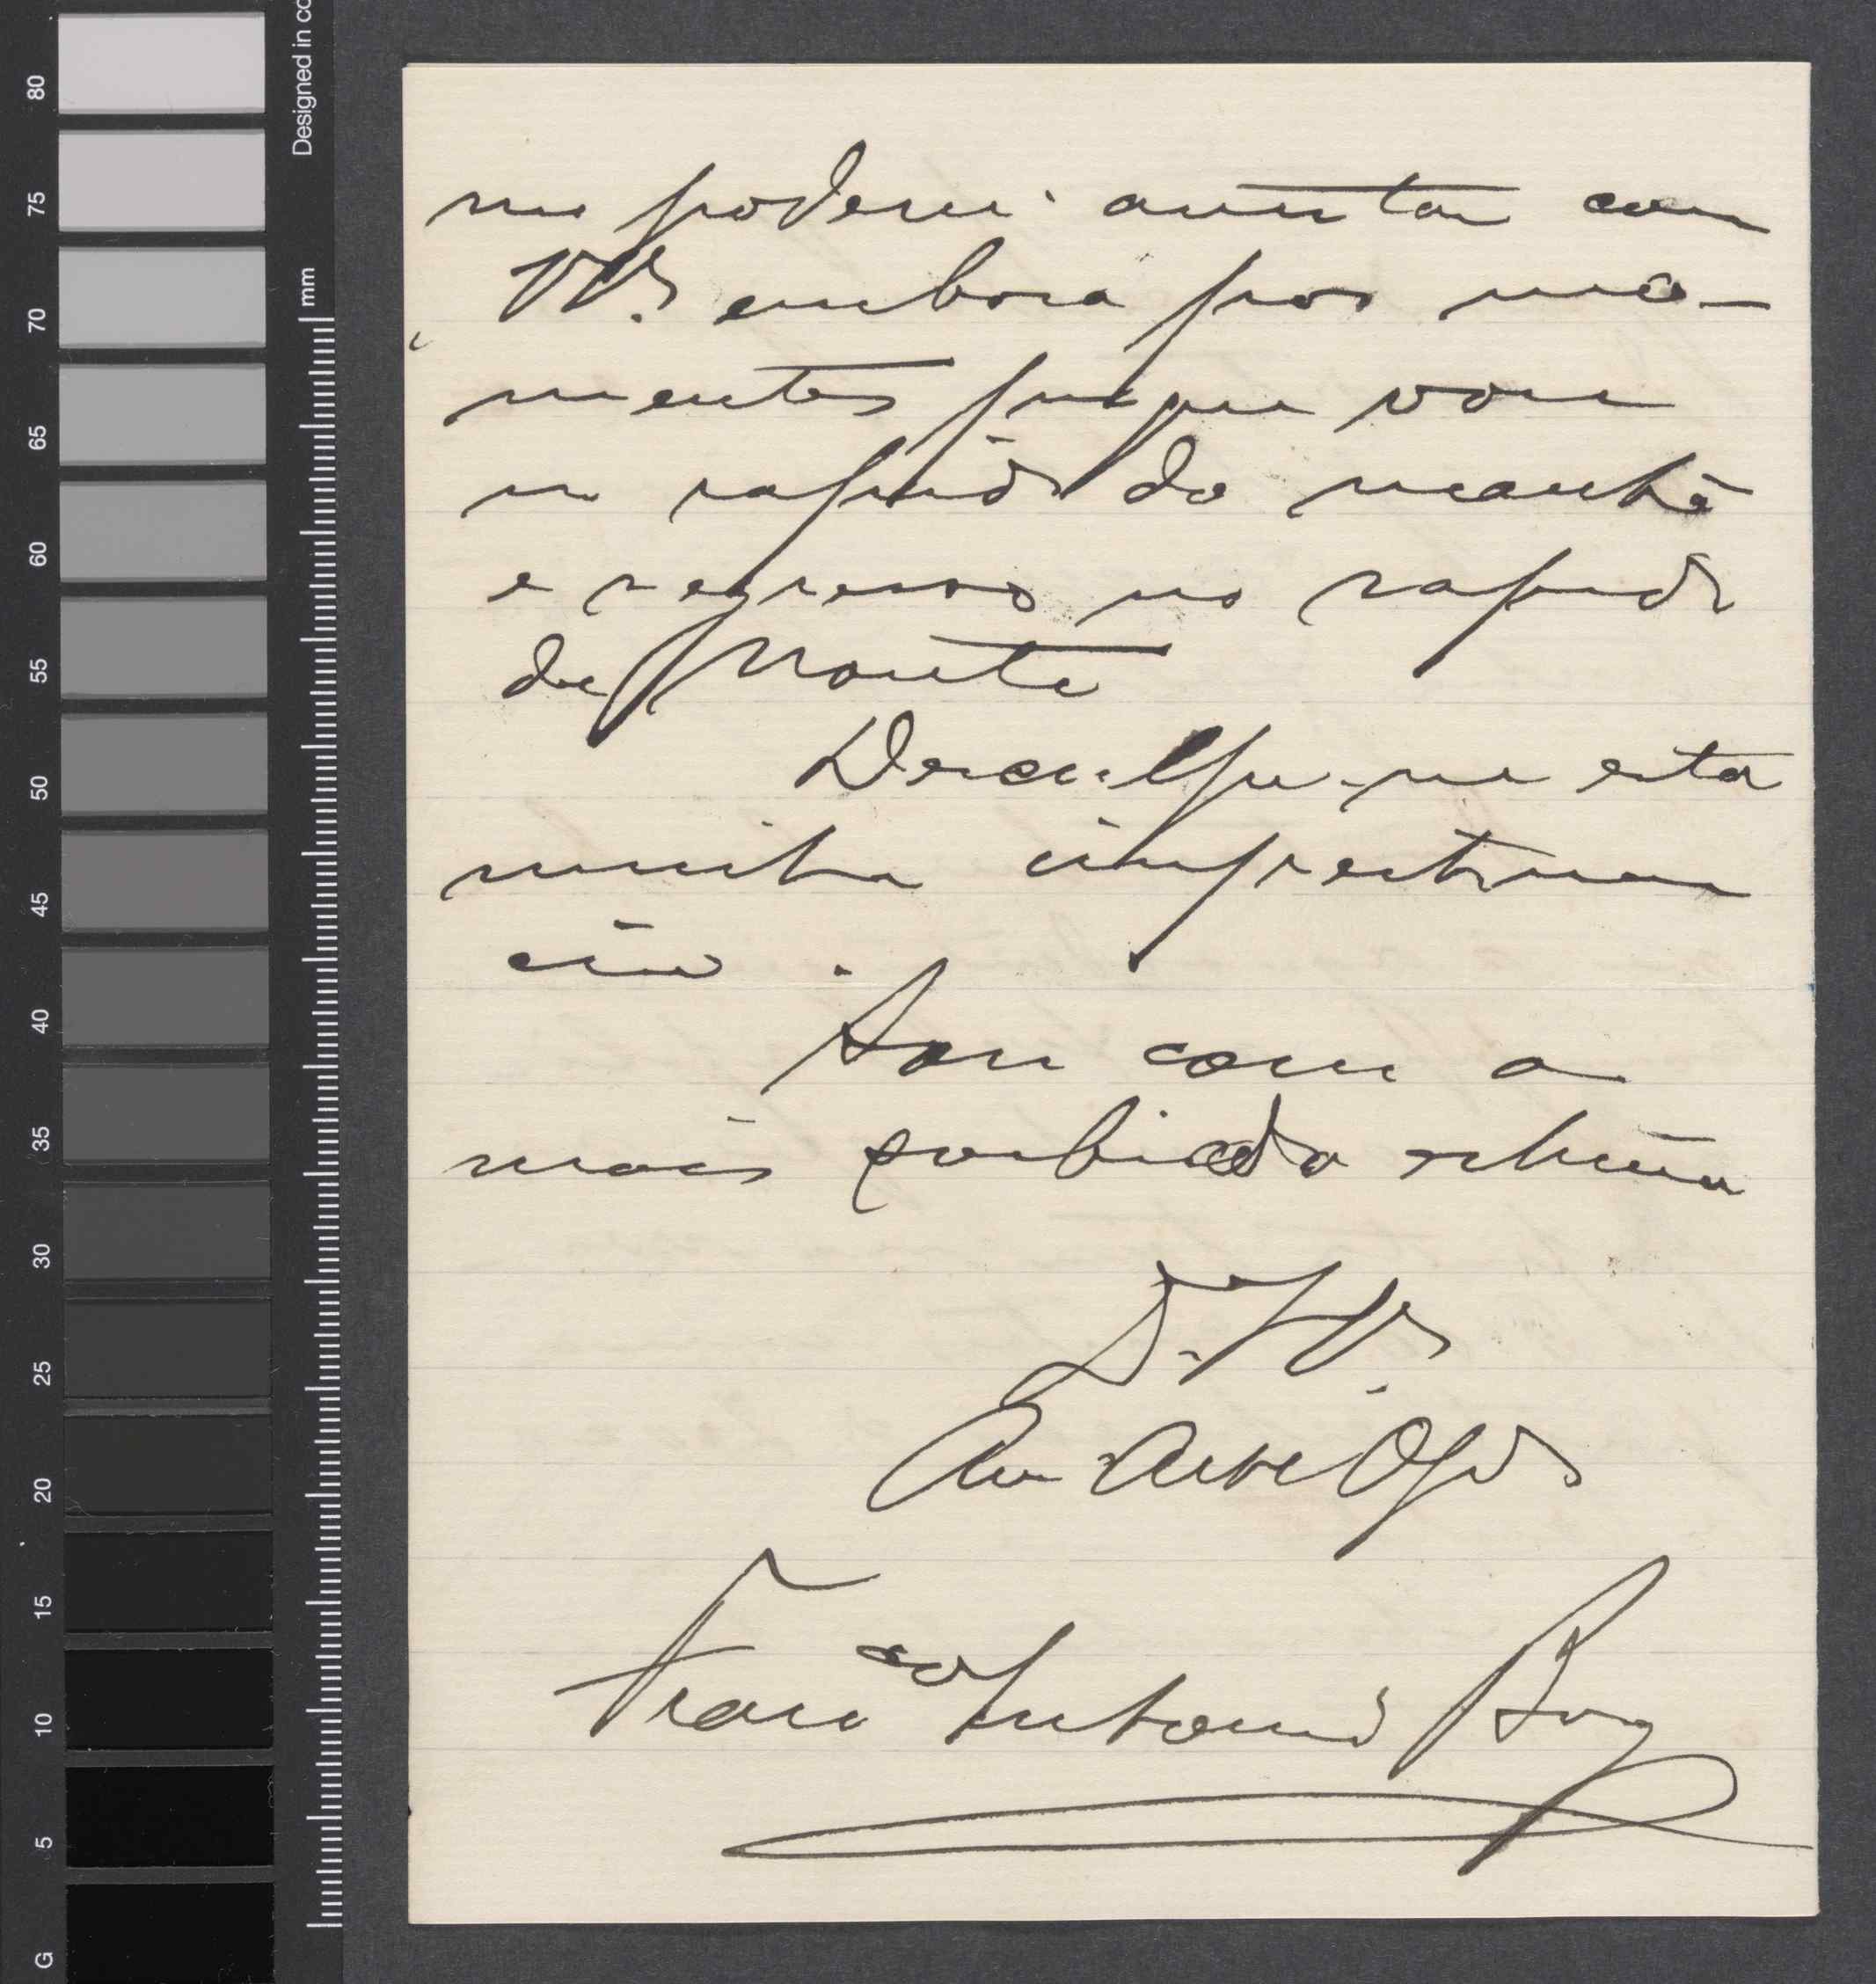 80
75
70
65
60
55
50
45
40
35
30
25
20
15
10
5
G
mm
Designed in co
me poderei com
V.V. embora por mo-
mentos porque vou
no rapido da manhã
e regresso no rapido
da noute
Desculpe-me esta
minha importuna
ção.
Sou com a
mais subida estima
D. V.
Am. At.
Franco Antonio